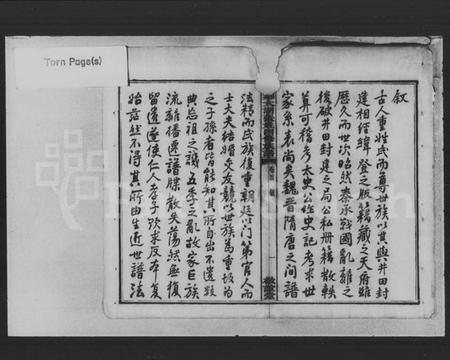 Torn Page(s)
叙
古人重姓氏而尊世族以其與井田封
建相經緯登之版籍藏之天府雖
歷久而世次昭然秦承戰國亂離之
後破井田封建之局公私冊籍散軼
莫可稽考太史公作史記考求世
家系表尚矣魏晉隋唐之間譜
法稍而氏族復重朝廷以門第官人而
士大夫結婚交友競以世族為重故為
之子孫者皆能知其所自出不遺數
典忘祖之譏五季之亂故家巨族
流離播遷譜牒散失蕩然無復
留遺遂使仁人孝子欲求反本復
始茫然不得其所由生近世譜法